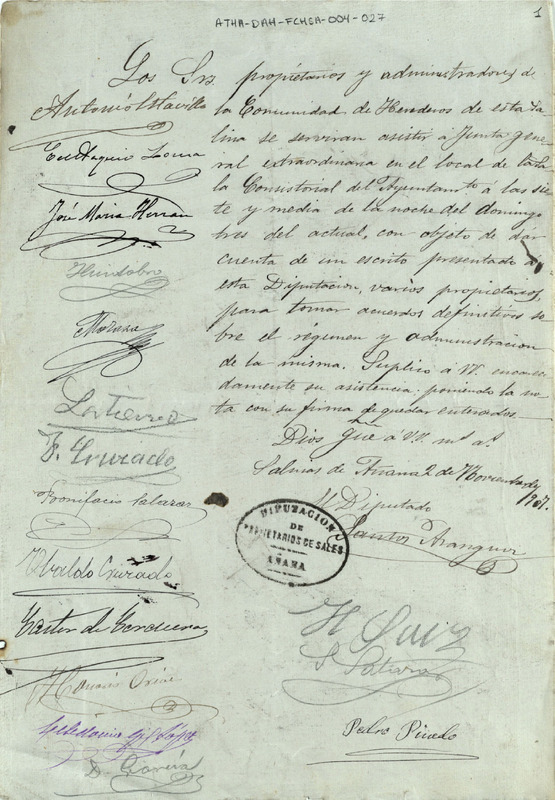 ATHA-DAH-FCHSA-004-027
1
Los Srs. propietarios y administradores de
la Comunidad de Herederos de esta Sa
lina se serviran asistir á Junta gene
ral extraordinaria en el local de la Sa
la Consistorial del Ayuntamto á las sie
te y media de la noche del domingo
tres del actual, con objeto de dar
cuenta de un escrito presentado á
esta Diputación, varios propietarios,
para tomar acuerdos definitivos so
bre el régimen y administracion
de la misma. Suplico á VV. encareci
damente su asistencia poniendo la no
ta con su firma de quedar enterados.
Dios gue á VV. ms. as.
Salinas de Añana 2 de Noviembre
1907.
El Diputado
Santos Aranguiz
DIPUTACION
DE
PROPIETARIOS DE SALES
AÑANA
Antonio
Eustaquio
José Maria Herran
Moraza
F. Gurado
Bonifacio Salazar
Ubaldo
Castor de
Honorio
D. García
Pedro Pinedo